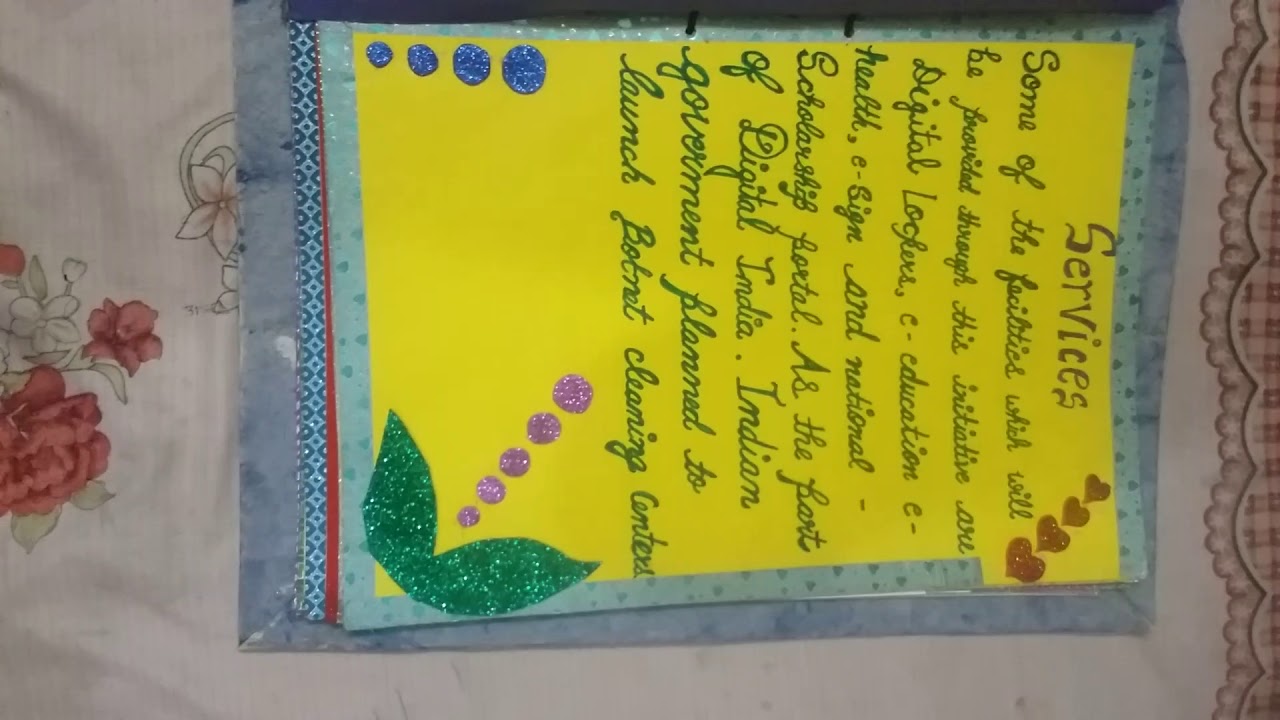 Services
Some of the facilities which will
be provided through this initiative are
Digital Lockers, e-education e-
health, e-Sign and national -
Scholarship portal. As the part
of Digital India. Indian
government planned to
launch Botnet cleaning Centers